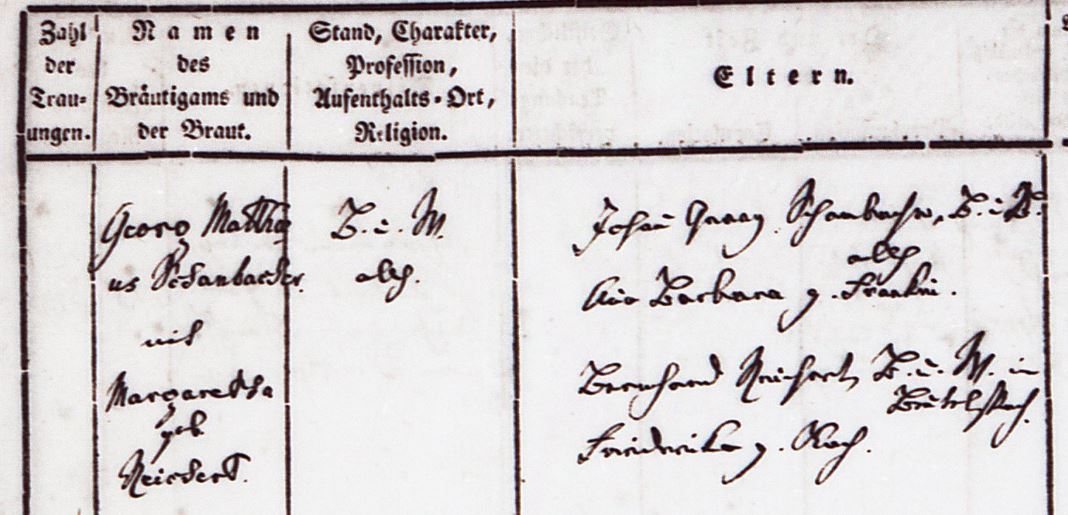 Zahl
der
Trau-
ungen.
Namen
des
Bräutigams und
der Braut.
Stand, Charakter,
Profession,
Aufenthalts-Ort,
Religion.
Eltern.
Georg Matthä
us Schanbacher
mit
Margaretha
geb.
Reichert.
B. u. W.
allh.
Johan Georg Schanbacher, B. u. W.
allh
Barbara g. Frankin.
Bernhard Reichert, B. u. W. in
Beutelspach.
Friederike g. Koch.